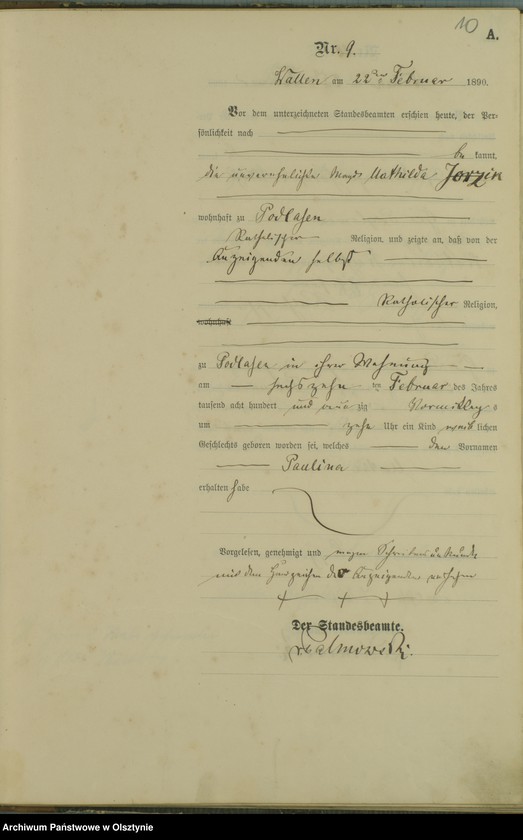 10
A.
Nr. 9.
Wallen am 22ten Februar 1890.
Vor dem unterzeichneten Standesbeamten erschien heute, der Per-
sönlichkeit nach
be kannt,
die unverehelichte Magd Mathilde Jorzik
wohnhaft zu Podlasen
Katholischer Religion, und zeigte an, daß von der
Anzeigenden selbst
Katholischer Religion,
wohnhaft
zu Podlasen in ihrer Wohnung
am sechszehn ten Februar des Jahres
tausend acht hundert und neun zig Vormittag s
um zehn Uhr ein Kind weib lichen
Geschlechts geboren worden sei, welches den Vornamen
Paulina
erhalten habe
Vorgelesen, genehmigt und wegen Schreibensunkunde
mit den Handzeichen der Anzeigenden versehen
+ + +
Der Standesbeamte.
Archiwum Państwowe w Olsztynie